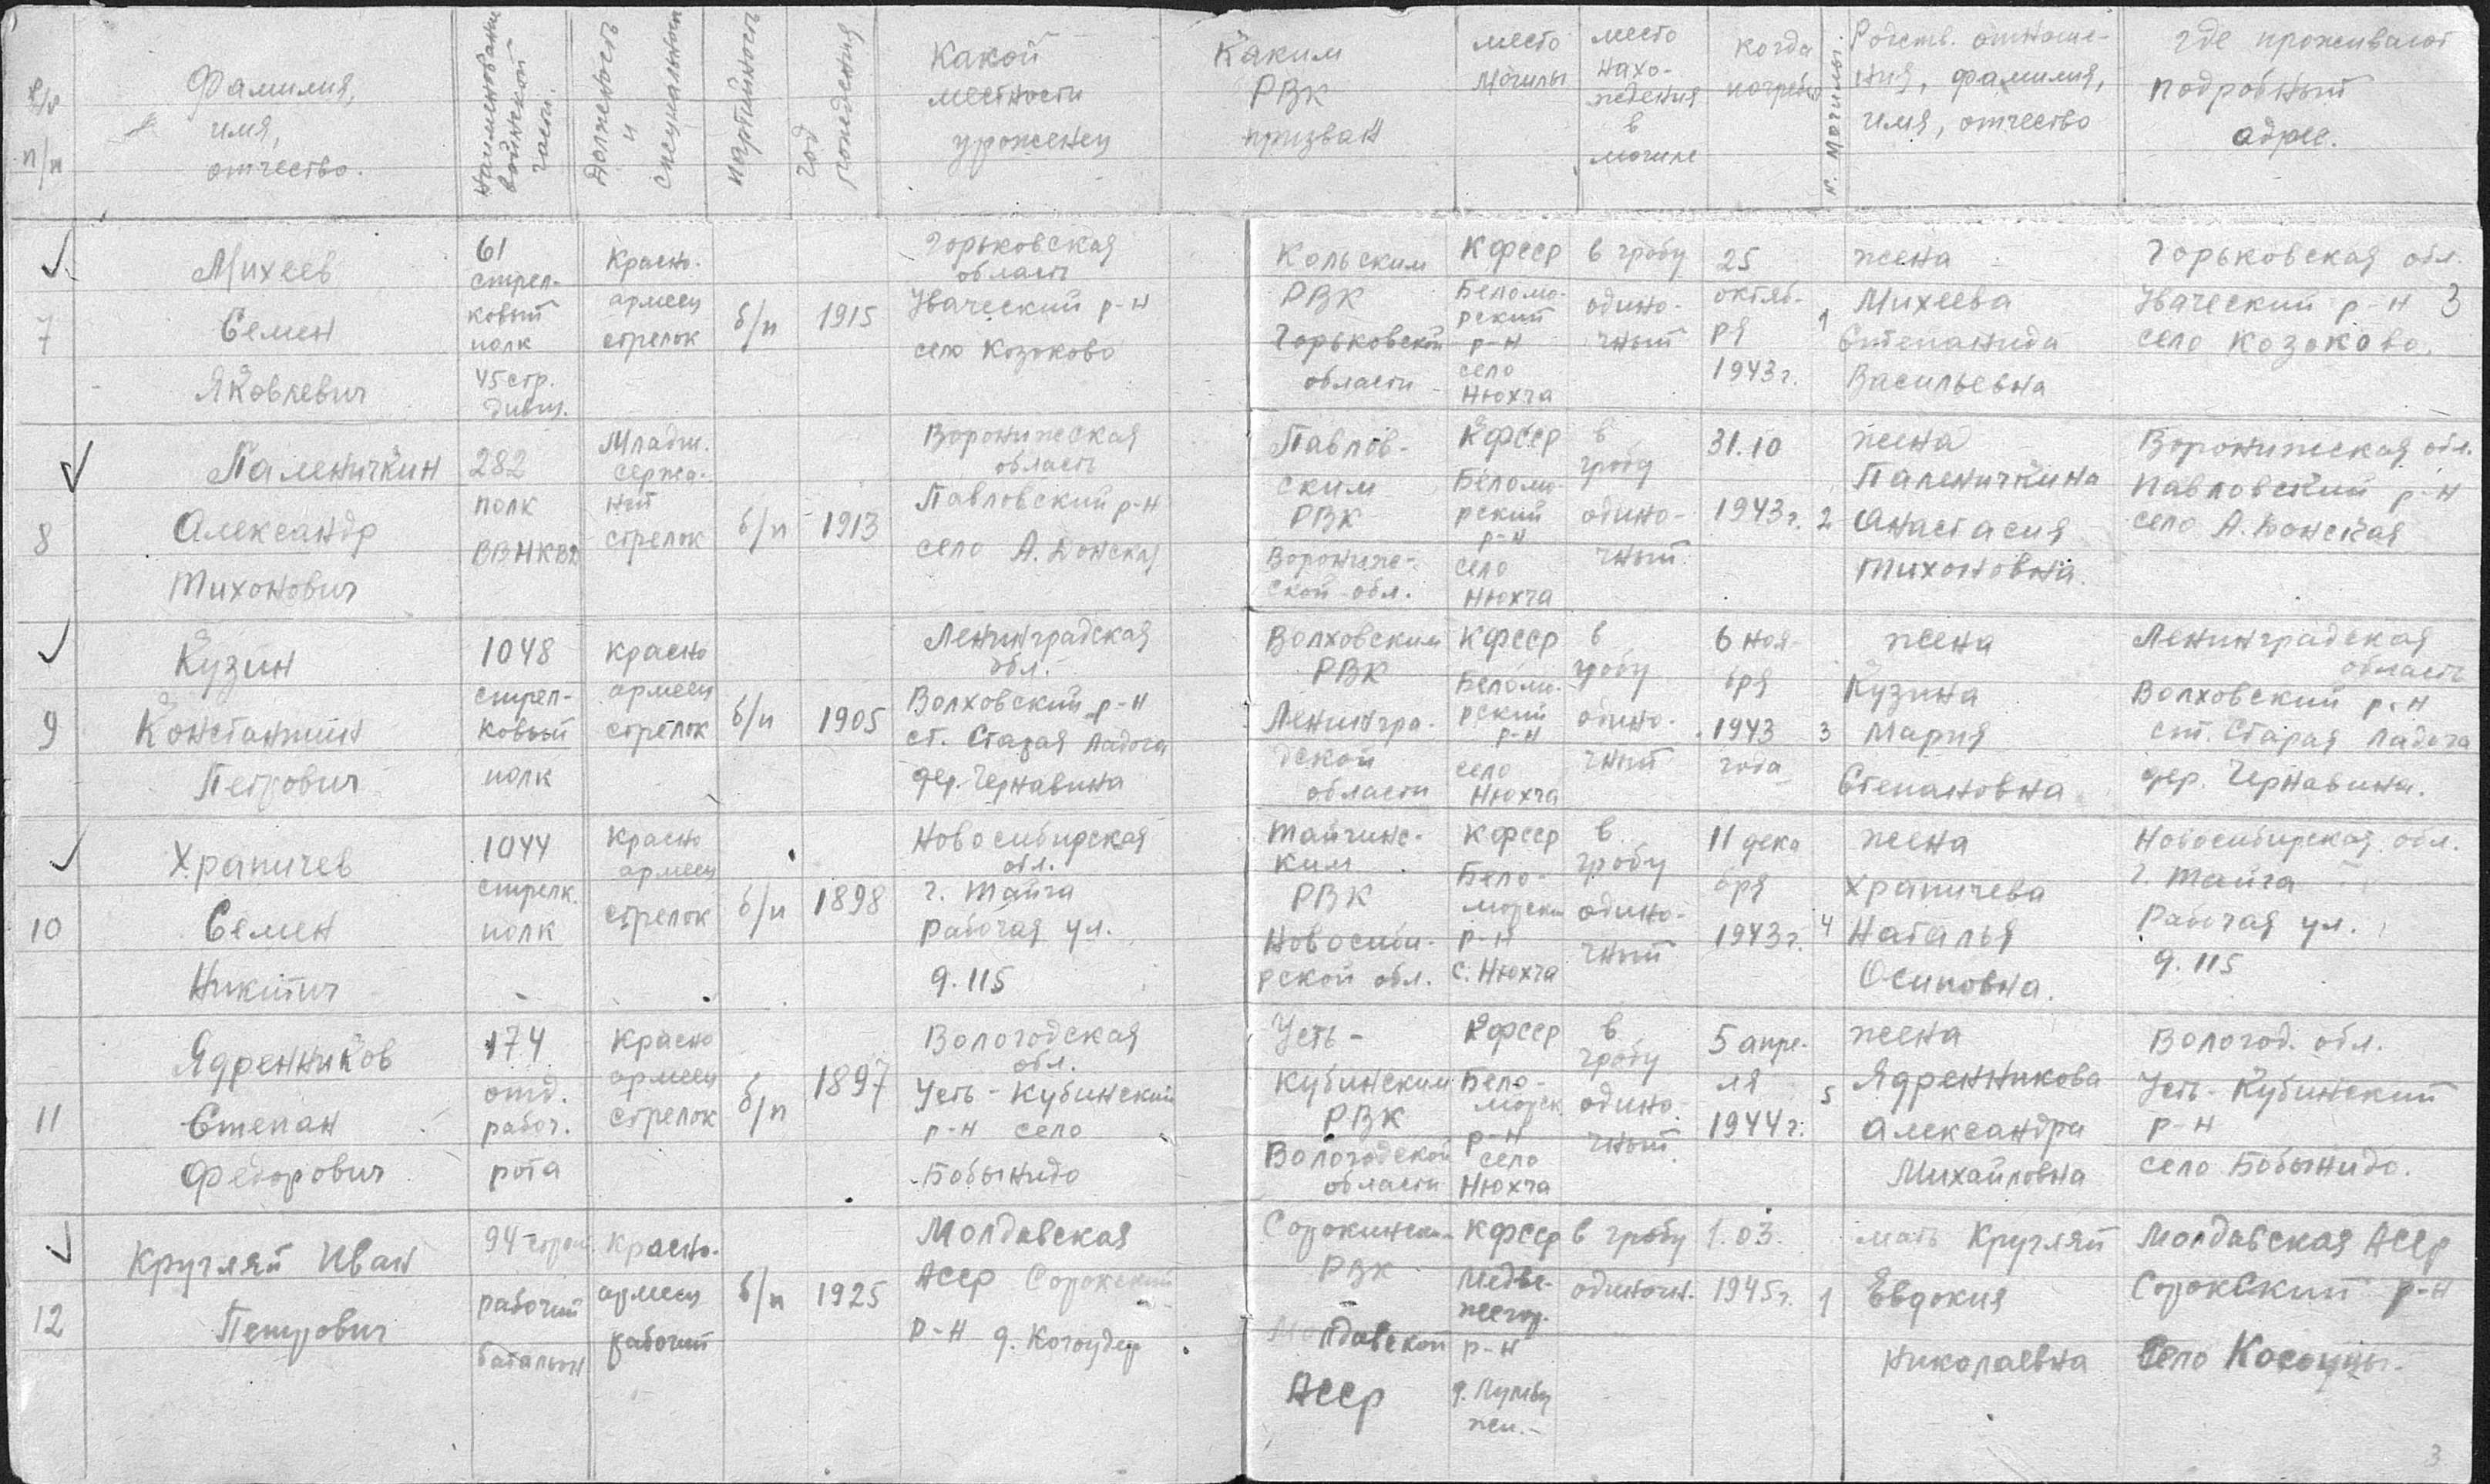 №/№ п/п
Фамилия,
имя,
отчество.
Наименование
войнской
части.
Должность
и
специальность
партийность
год
рождения
Какой
местности
уроженец
Каким
РВК
призван
место
могилы
место
нахо-
ждения
в
могиле
когда
погребен
№ могилы.
Родств. отноше-
ния, фамилия,
имя, отчество
где проживают
подробный
адрес.
7
Михеев
Семен
Яковлевич
61
стрел-
ковый
полк
45 стр.
дивиз.
Красно-
армеец
стрелок
б/п
1915
Горьковская
область
Уваческий р-н
село Козоково
Кольским
РВК
Горьковской
области
КФССР
Беломо-
рский
р-н
село
Нюхча
в гробу
одино-
чный
25
октяб-
ря
1943 г.
1
жена
Михеева
Степанида
Васильевна
Горьковская обл.
Уваческий р-н 3
село Козоково.
8
Паленичкин
Александр
Тихонович
282
полк
ВВНКВД
Младш.
сержа-
нт
стрелок
б/п
1913
Воронижская
область
Павловский р-н
село А. Донская
Павлов-
ским
РВК
Ворониже-
ской обл.
КФССР
Беломо-
рский
р-н
село
Нюхча
в
гробу
одино-
чный.
31.10
1943 г.
2
жена
Паленичкина
Анастасия
Тихоновна.
Воронижская обл.
Павловский р-н
село А. Донская
9
Кузин
Константин
Петрович
1048
стрел-
ковый
полк
Красно
армеец
стрелок
б/п
1905
Ленинградская
обл.
Волховский р-н
ст. Старая Ладога
дер. Чернавина
Волховским
РВК
Ленингра-
дской
области
КФССР
Беломо-
рский
р-н
село
Нюхча
в
гробу
одино-
чный
6 ноя-
бря
1943
года
3
жена
Кузина
Мария
Степановна
Ленинградская
область
Волховский р-н
ст. Старая Ладога
дер. Чернавина.
10
Храпичев
Семен
Никитич
1044
стрелк.
полк
Красно
армеец
стрелок
б/п
1898
Новосибирская
обл.
г. Тайга
Рабочая ул.
д. 115
Тайгинс-
ким
РВК
Новосиби-
рской обл.
КФССР
Бело-
морски
р-н
с. Нюхча
в
гробу
одино-
чный
11 дека
бря
1943 г.
4
жена
Храпичева
Наталья
Осиповна.
Новосибирская обл.
г. Тайга
Рабочая ул.
д. 115
11
Ядренников
Степан
Федорович
174
отд.
рабоч.
рота
Красно
армеец
стрелок
б/п
1897
Вологодская
обл.
Усть-Кубинский
р-н село
Бобынидо
Усть-
Кубинским
РВК
Вологодской
области
КФССР
Бело-
морск
р-н
село
Нюхча
в
гробу
одино-
чный.
5 апре-
ля
1944 г.
5
жена
Ядренникова
Александра
Михайловна
Вологод. обл.
Усть-Кубинский
р-н
село Бобынидо.
12
Кругляй Иван
Петрович
94
рабочий
батальон
Красно-
армеец
рабочий
б/п
1925
Молдавская
АССР Сорокский
р-н д.
РВК
Молдавской
АССР
КФССР
Медве-
жегор.
р-н
в гробу
одиночн.
1.03.
1945 г.
1
мать Кругляй
Евдокия
Николаевна
Молдавская АССР
Сорокский р-н
Село
3